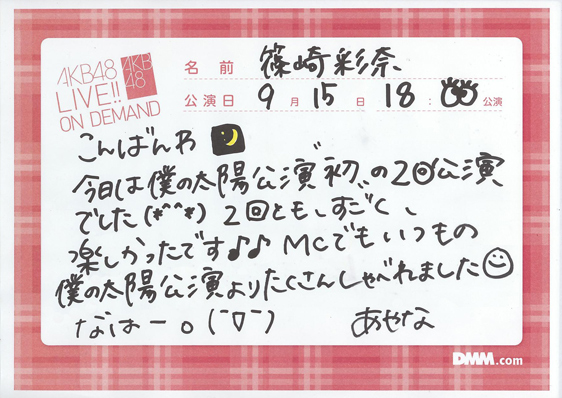 AKB48
LIVE!!
ON DEMAND
AKB
48
名 前 篠崎彩奈、
公演日 9 月 15 日 18 : 00 公演
こんばんわ
今日は僕の太陽公演゛初゛の2回公演
でした(*^^*) 2回とも、すごく、
楽しかったです♪♪ MCでもいつもの
僕の太陽公演よりたくさんしゃべれました☺
なはー。(¯∇¯) あやな
DMM.com